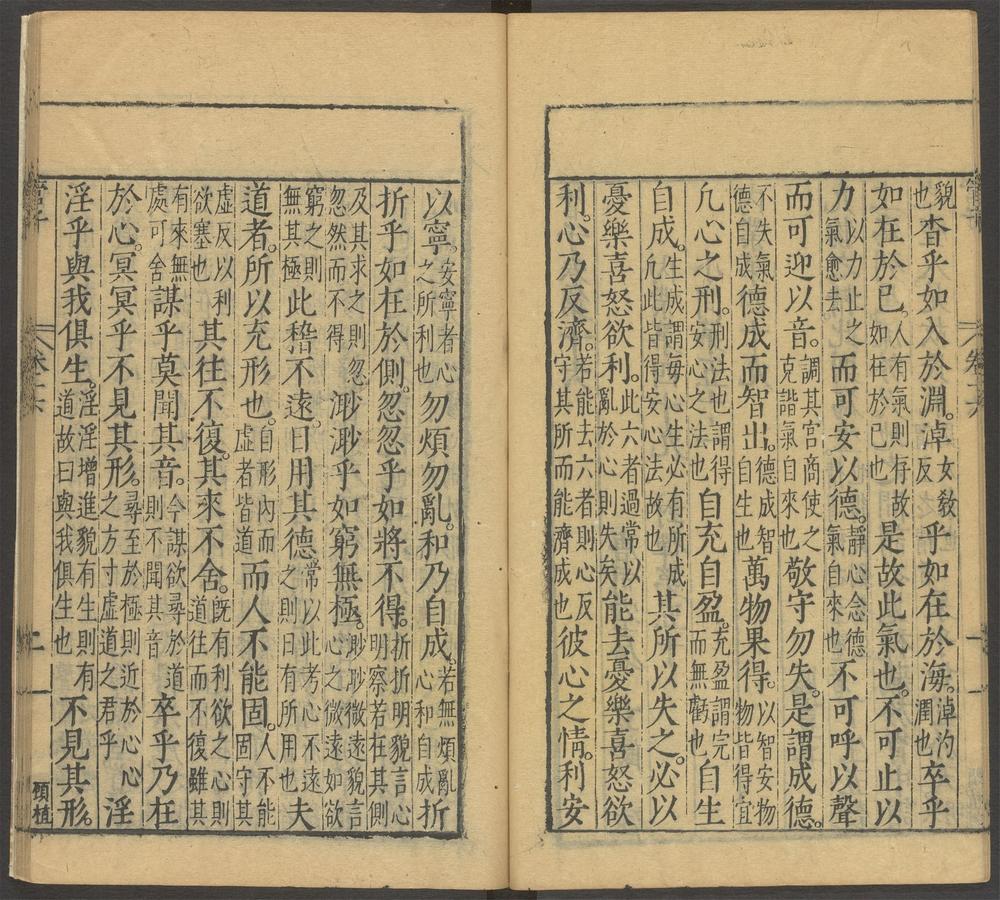 貌也杳乎如入於淵淖女敎反乎如在於海淖汋潤也卒乎
如在於已人有氣則存故如在於己也是故此氣也不可止以
力以力止之氣愈去而可安以德靜心念德氣自來也不可呼以聲
而可迎以音調其宮商使之克諧氣自來也敬守勿失是謂成德
不失氣德自成德成而智出德成智自生也萬物果得以智安物物皆得宜
凡心之刑刑法也謂得安心之法也自充自盈充盈謂完而無虧也自生
自成生成謂每心生必有所成凡此皆得安心法故也其所以失之必以
憂樂喜怒欲利此六者過常以亂於心則失矣能去憂樂喜怒欲
利心乃反濟若能去六者則心反守其所而能濟成也彼心之情利安
以寧安寧者心之所利也勿煩勿亂和乃自成若無煩亂心和自成折
折乎如在於側忽忽乎如將不得折折明貌言心明察若在其側
及其求之則忽忽然而不得渺渺乎如窮無極渺渺微遠貌言心之微遠如欲
窮之則無其極此稽不遠日用其德常以此考心不遠之則日有所用也夫
道者所以充形也自形內而虛者皆道而人不能固人不能固守其
虛反以利欲塞也其往不復其來不舍旣有利欲之心則道往而不復雖其
有來無處可舍謀乎莫聞其音今謀欲尋於道則不聞其音卒乎乃在
於心冥冥乎不見其形尋至於極則近於心心之方寸虛道之君乎淫
淫乎與我俱生淫淫增進貌有生則有道故曰與我俱生也不見其形
管子
卷十六
二
顧植